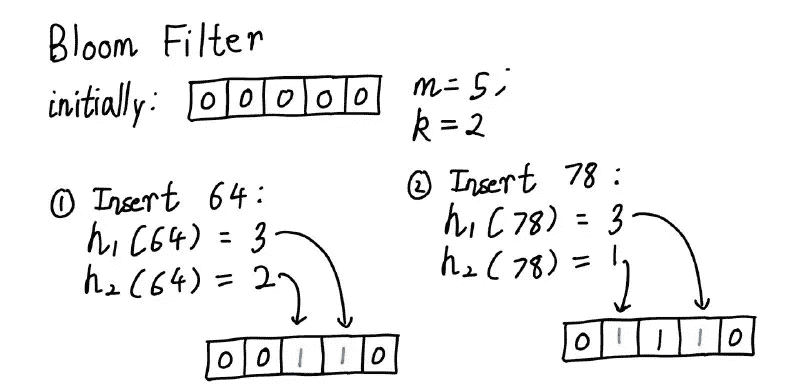 Bloom Filter
initially: 0 0 0 0 0
m = 5;
k = 2
① Insert 64:
h₁(64) = 3
h₂(64) = 2
0 0 1 1 0
② Insert 78:
h₁(78) = 3
h₂(78) = 1
0 1 1 1 0